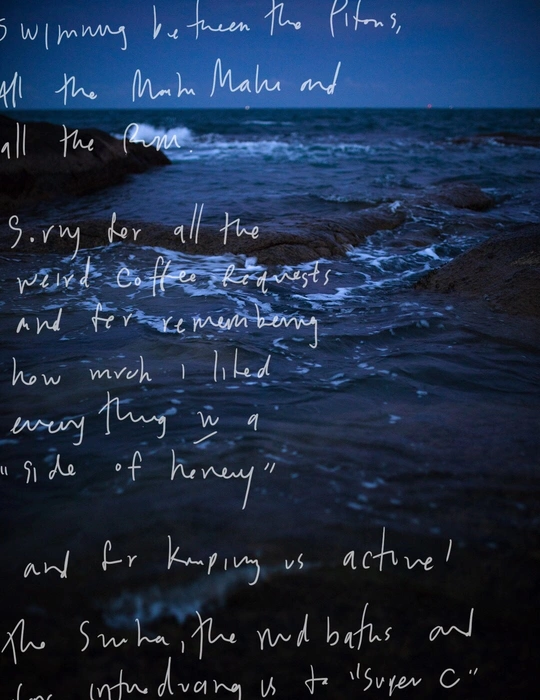 Swimming between the Pitons,
All the Mahi Mahi and
all the Rum.
Sorry for all the
weird coffee requests
and for remembering
how much i liked
everything w a
"side of honey"
and for keeping us active!
the , the mud baths and
for introducing us to "Super C"